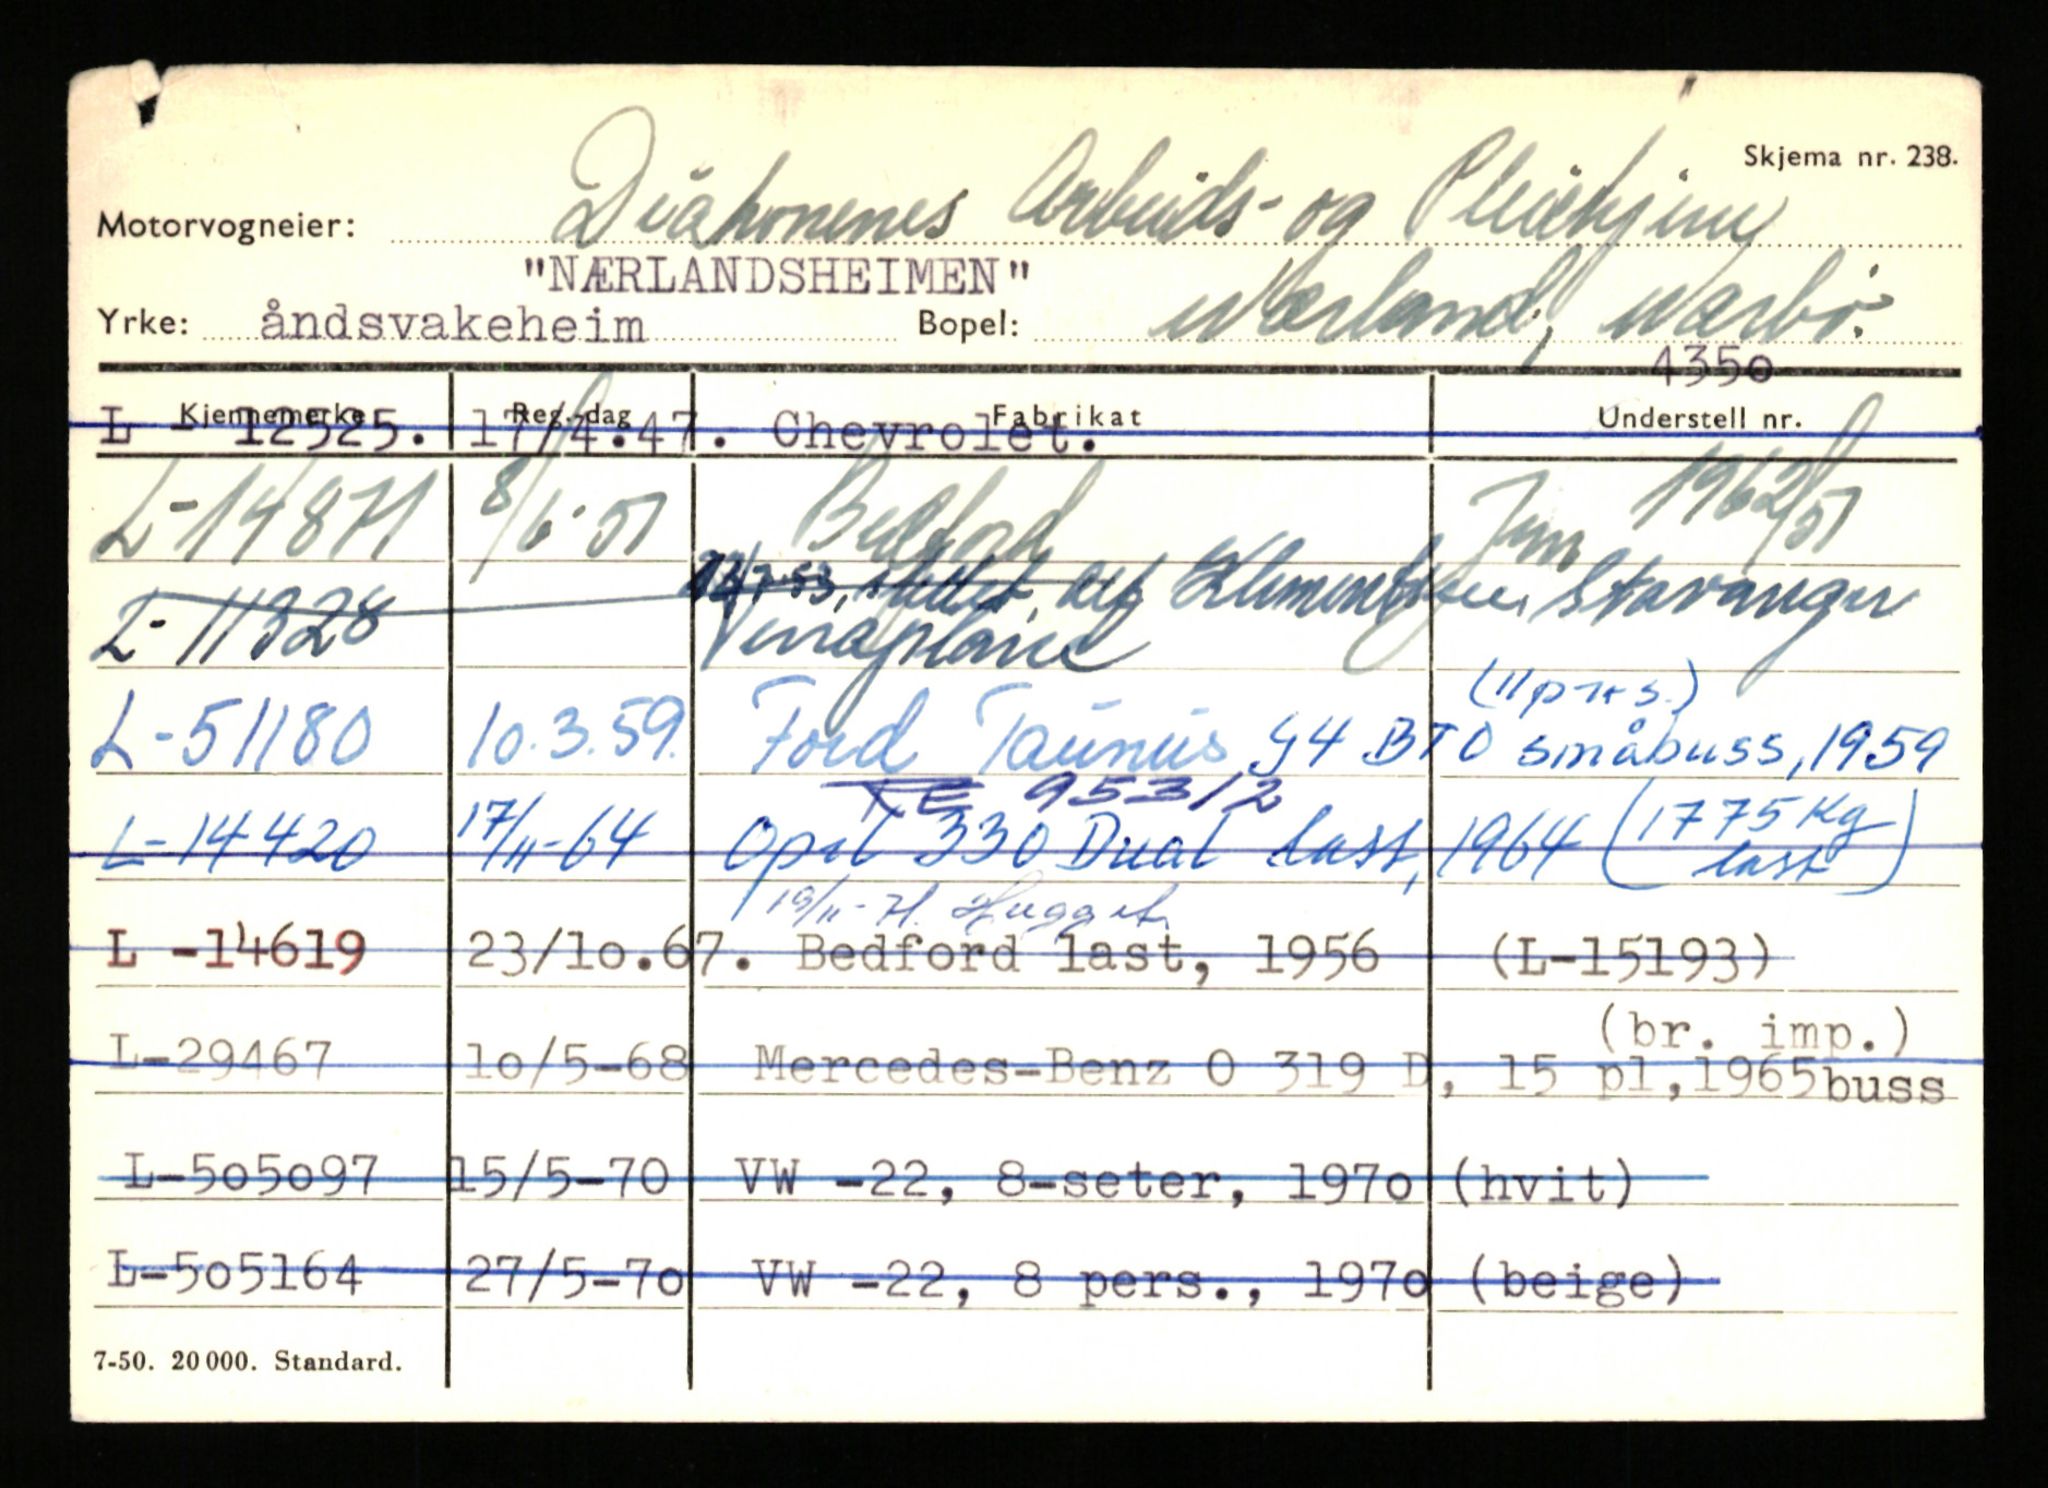 Skjema nr. 238.
Motorvogneier: Diakonenes Arbeids- og Pleiehjem
"NÆRLANDSHEIMEN"
Yrke: åndsvakeheim Bopel: Nærland, Nærbø.
4350
Kjennemerke Reg. dag Fabrikat Understell nr.
L - 12525. 17/4.47. Chevrolet.
L-14871 8/6-51 Bedford 1962/51
L-11328 Stavanger
L-51180 10.3.59. Ford Taunus G4 BTO småbuss, 1959
(11 prs.)
953/2
L-14420 17/11-64 Opel 330 Dual last, 1964 (1775 Kg last)
19/11-71. Hugget
L -14619 23/10.67. Bedford last, 1956 (L-15193)
(br. imp.)
L-29467 10/5-68 Mercedes-Benz O 319 D, 15 pl, 1965 buss
L-505097 15/5-70 VW -22, 8-seter, 1970 (hvit)
L-505164 27/5-70 VW -22, 8 pers., 1970 (beige)
7-50. 20 000. Standard.